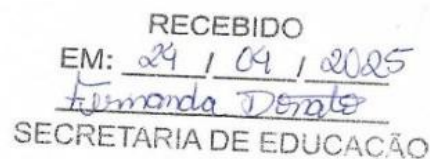 RECEBIDO
EM: 24 / 04 / 2025
Fernanda Donato
SECRETARIA DE EDUCAÇÃO